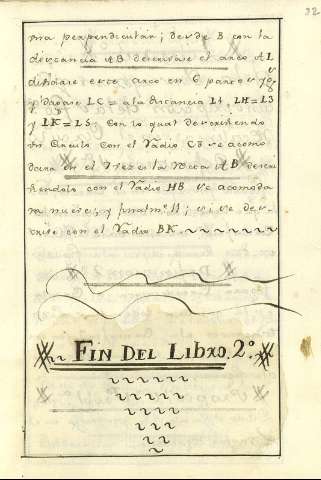 32
na perpendicular; desde B con la
distancia AB descrivase el arco AL
dividase este arco en 6 partes yg.s
y hagase LC = a la distancia L1, LH = L3
y LK = L5. Con lo qual descriviendo
un Circulo con el Radio CB se acomo
dara en el 7 vezes la Recta AB descri
viendolo con el Radio HB se acomoda
ra nueve, y finalm.te 11; si se des-
crive con el Radio BK.
FIN DEL LIBRO. 2º.